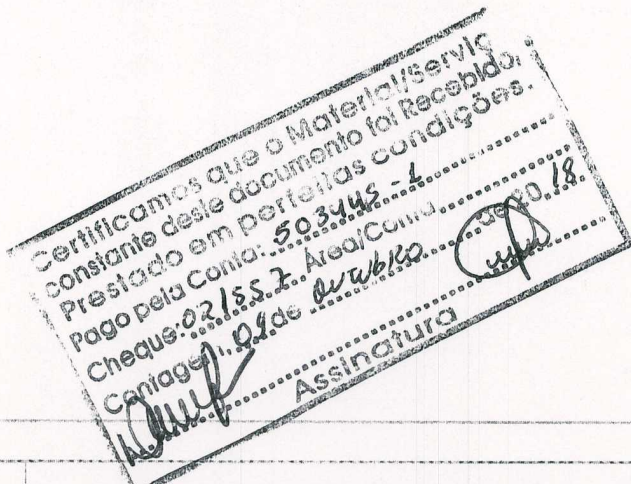 Certificamos que o Material/Serviç
constante deste documento foi Recebido,
Prestado em perfeitas condições.
Pago pela Conta: 503445-1
Cheque: Area/Conta
Contagem, 09 de OUTUBRO de 20 18
Assinatura